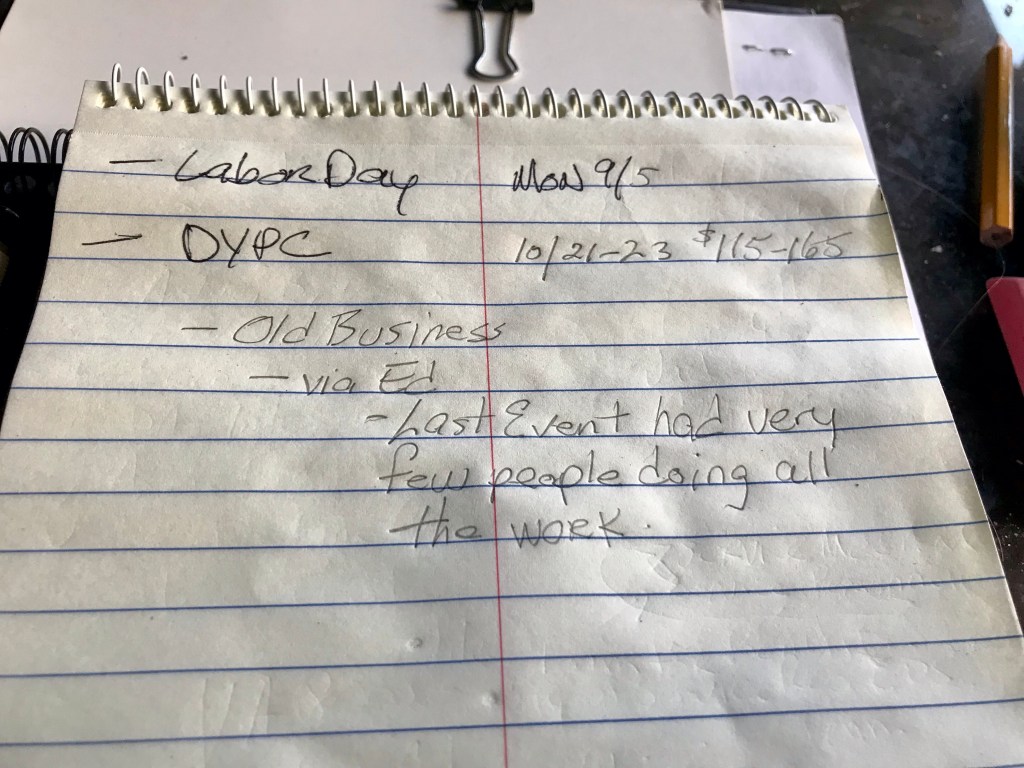 — Labor Day Mon 9/5
— DYPC 10/21-23 $115-165
— Old Business
— via Ed
- Last Event had very
few people doing all
the work.